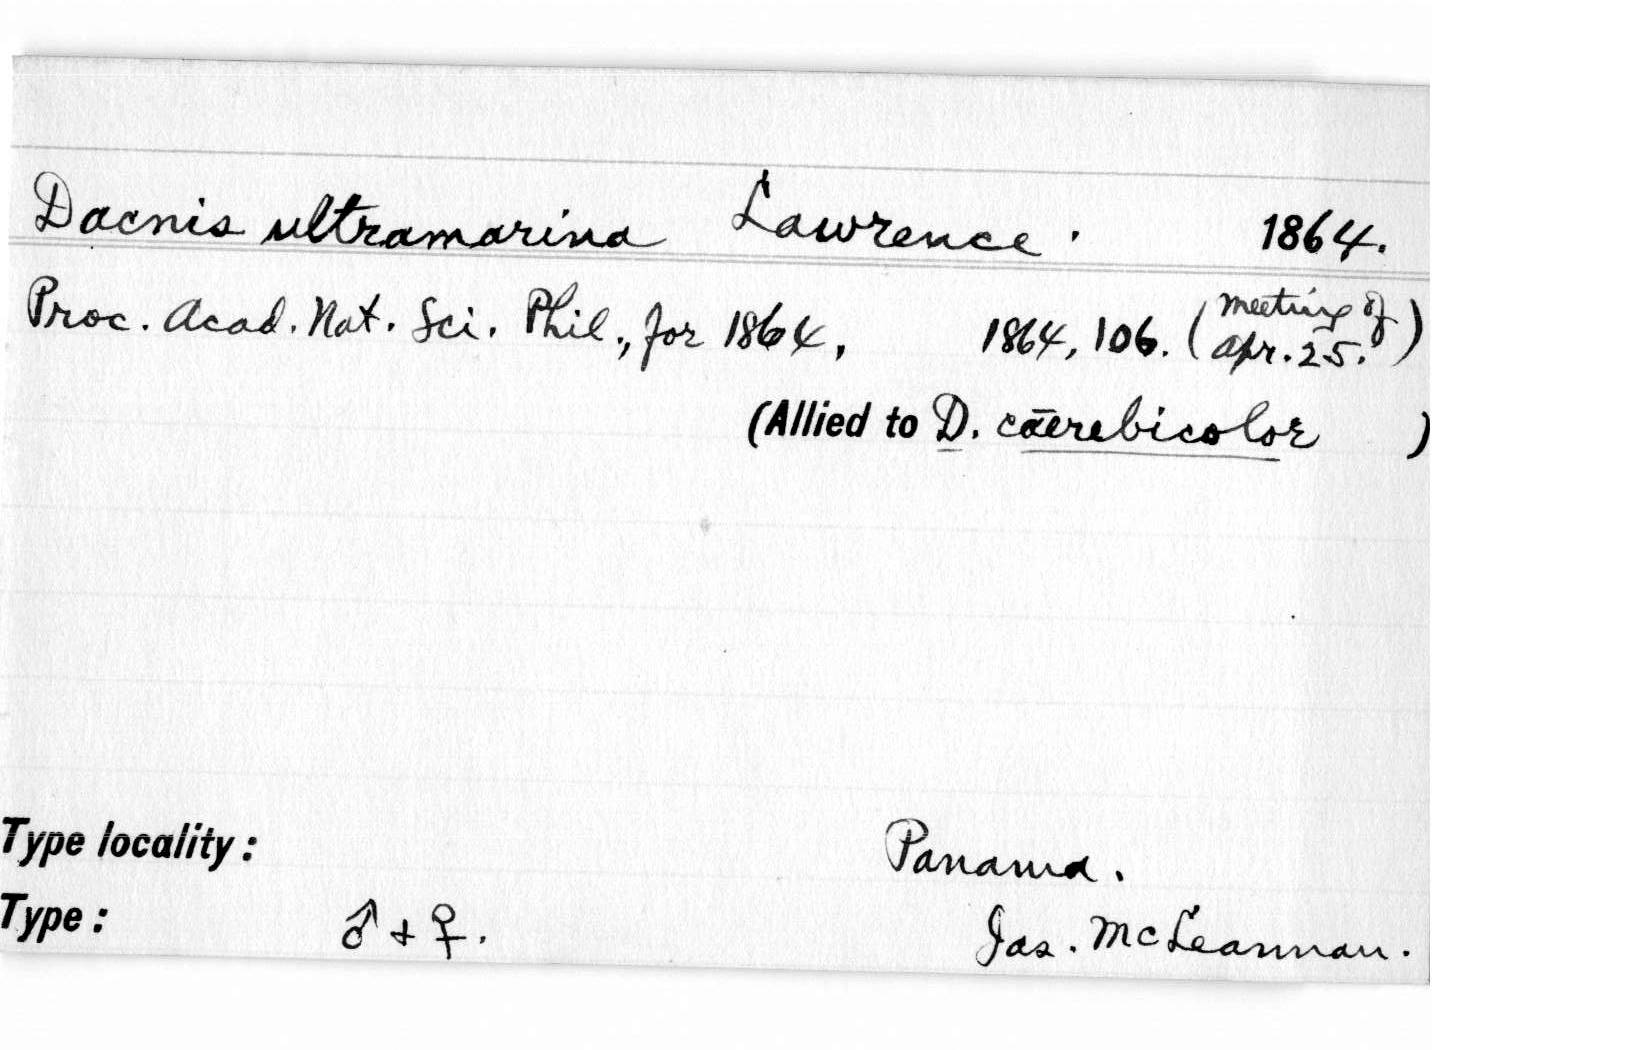 Dacnis ultramarina Lawrence. 1864.
Proc. Acad. Nat. Sci. Phil., for 1864, 1864, 106. (meeting of
Apr. 25.)
(Allied to D. cāerebicolor )
Type locality: Panama.
Type: ♂ + ♀. Jas. McLeannan.